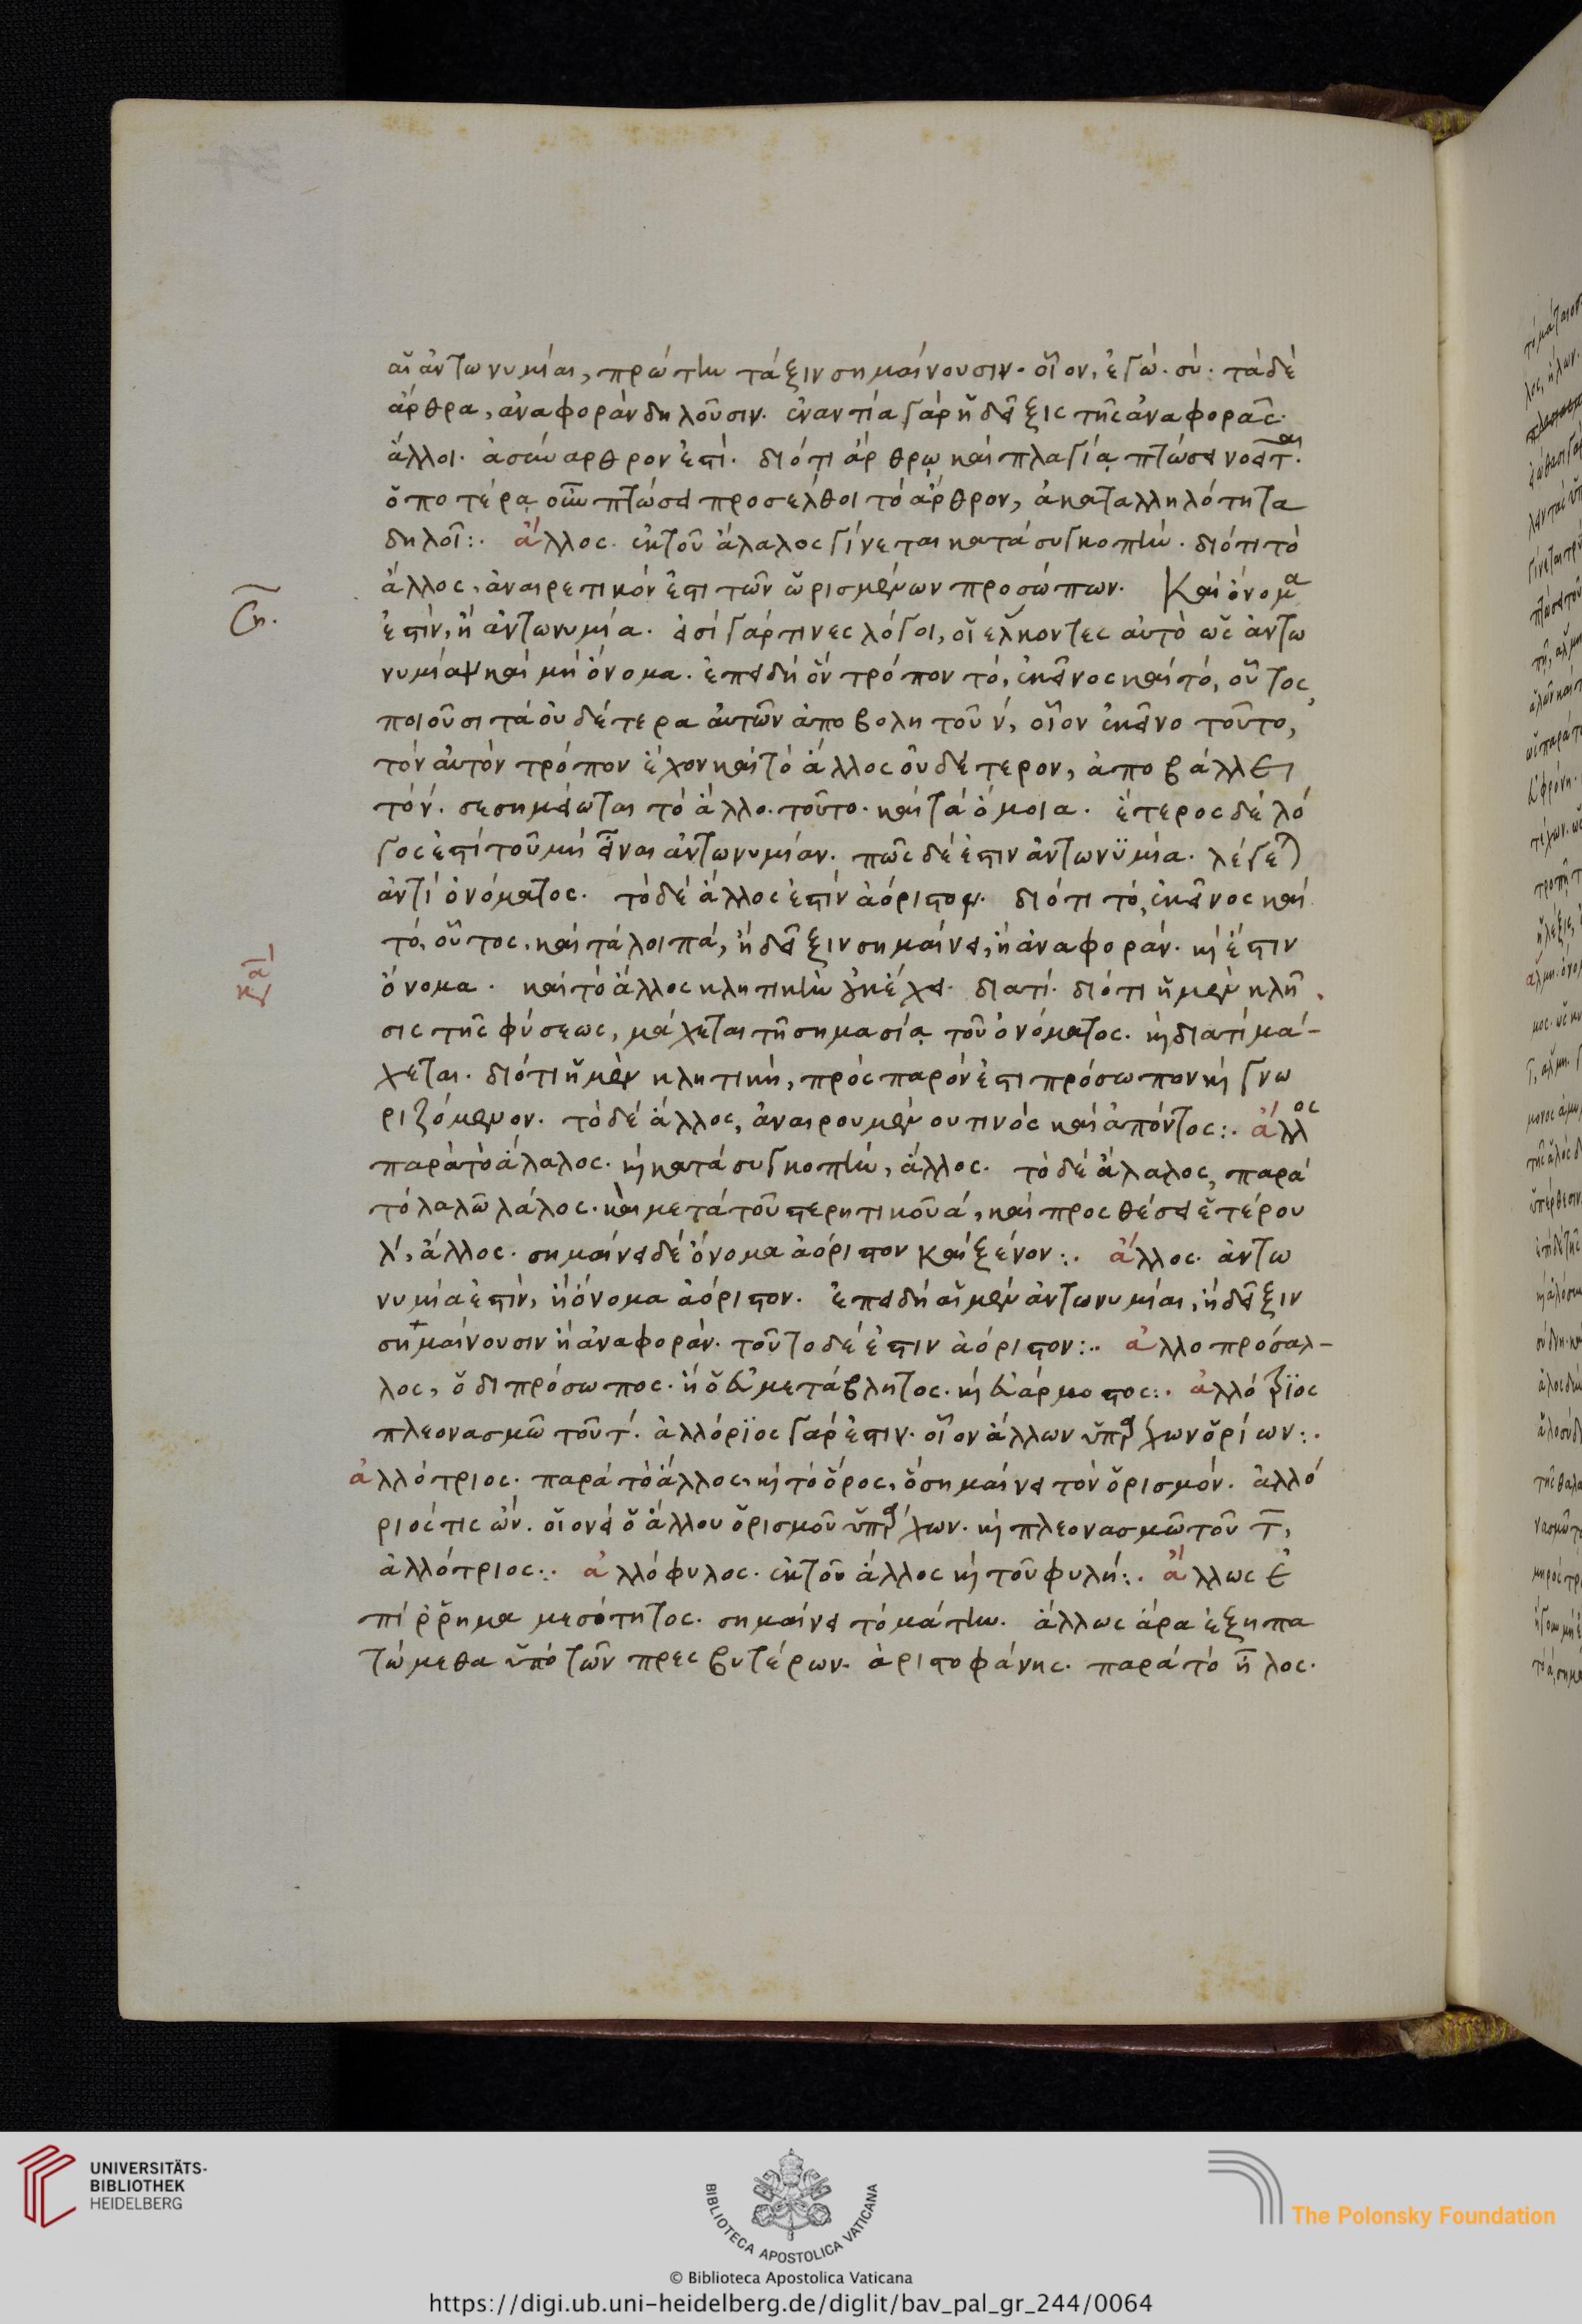 αἱ ἀντωνυμίαι, πρώτην τάξιν σημαίνουσιν· οἷον, ἐγώ· σύ: τὰ δὲ
ἄρθρα, ἀναφορὰν δηλοῦσιν. ἐναντία γὰρ ἡ δεῖξις τῆς ἀναφορᾶς·
ἄλλοι· ἀσύναρθρον ἐστί. διότι ἄρθρῳ καὶ πλαγίᾳ πτώσει νοεῖται.
ὁποτέρᾳ οὖν πτώσει προσέλθοι τὸ ἄρθρον, ἀκαταλληλότητα
δηλοῖ:. ἄλλος· ἐκ τοῦ ἄλαλος γίνεται κατὰ συγκοπήν. διότι τὸ
ἄλλος, ἀναιρετικόν ἐστι τῶν ὡρισμένων προσώπων. Καὶ ὄνομα
ἐστίν, ἢ ἀντωνυμία. εἰσὶ γάρ τινες λόγοι, οἱ ἕλκοντες αὐτὸ ὡς ἀντω
νυμίαν καὶ μὴ ὄνομα. ἐπειδὴ ὃν τρόπον τό, ἐκεῖνος καὶ τό, οὗτος,
ποιοῦσι τὰ οὐδέτερα αὐτῶν ἀποβολῇ τοῦ ν, οἷον ἐκεῖνο τοῦτο,
τὸν αὐτὸν τρόπον ἔχον καὶ τὸ ἄλλος οὐδέτερον, ἀποβάλλει
τὸ ν. σεσημείωται τὸ ἄλλο. τοῦτο. καὶ τὰ ὅμοια. ἕτερος δὲ λό
γος ἐπὶ τοῦ μὴ εἶναι ἀντωνυμίαν. πῶς δέ ἐστιν ἀντωνυμία. λέγεται
ἀντὶ ὀνόματος. τὸ δὲ ἄλλος ἐστὶν ἀόριστον. διότι τό, ἐκεῖνος καὶ
τό, οὗτος, καὶ τὰ λοιπά, ἢ δεῖξιν σημαίνει, ἢ ἀναφοράν. καὶ ἔστιν
ὄνομα. καὶ τὸ ἄλλος κλητικὴν οὐκ ἔχει. διατί. διότι ἡ μὲν κλῆ
σις τῆς φύσεως, μάχεται τῇ σημασίᾳ τοῦ ὀνόματος. καὶ διατί μά-
χεται. διότι ἡ μὲν κλητική, πρὸς παρόν ἐστι πρόσωπον καὶ γνω
ριζόμενον. τὸ δὲ ἄλλος, ἀναιρουμένου τινὸς καὶ ἀπόντος:. ἄλλος
παρὰ τὸ ἄλαλος. καὶ κατὰ συγκοπήν, ἄλλος. τὸ δὲ ἄλαλος, παρὰ
τὸ λαλῶ λάλος. καὶ μετὰ τοῦ στερητικοῦ α, καὶ προσθέσει ἑτέρου
λ, ἄλλος. σημαίνει δὲ ὄνομα ἀόριστον καὶ ξένον:. ἄλλος. ἀντω
νυμία ἐστίν, ἢ ὄνομα ἀόριστον. ἐπειδὴ αἱ μὲν ἀντωνυμίαι, ἢ δεῖξιν
σημαίνουσιν ἢ ἀναφοράν. τοῦτο δέ ἐστιν ἀόριστον:. ἀλλοπρόσαλ-
λος, ὁ διπρόσωπος. ἢ ὁ εὐμετάβλητος. καὶ εὐάρμοστος:. ἀλλότριος
πλεονασμῷ τοῦ τ. ἀλλόριος γάρ ἐστιν. οἷον ἄλλων ὑπάρχων ὁρίων:.
ἀλλότριος. παρὰ τὸ ἄλλος, καὶ τὸ ὅρος, ὃ σημαίνει τὸν ὁρισμόν. ἀλλό
ριός τις ὤν. οἱονεὶ ὁ ἄλλου ὁρισμοῦ ὑπάρχων. καὶ πλεονασμῷ τοῦ τ,
ἀλλότριος:. ἀλλόφυλος. ἐκ τοῦ ἄλλος καὶ τοῦ φυλή:. ἄλλως ἐ
πίρρημα μεσότητος. σημαίνει τὸ μάτην. ἄλλως ἄρα ἐξηπα
τώμεθα ὑπὸ τῶν πρεσβυτέρων. ἀριστοφάνης. παρὰ τὸ ἦλος.
UNIVERSITÄTS-
BIBLIOTHEK
HEIDELBERG
BIBLIOTECA APOSTOLICA VATICANA
The Polonsky Foundation
© Biblioteca Apostolica Vaticana
https://digi.ub.uni-heidelberg.de/diglit/bav_pal_gr_244/0064